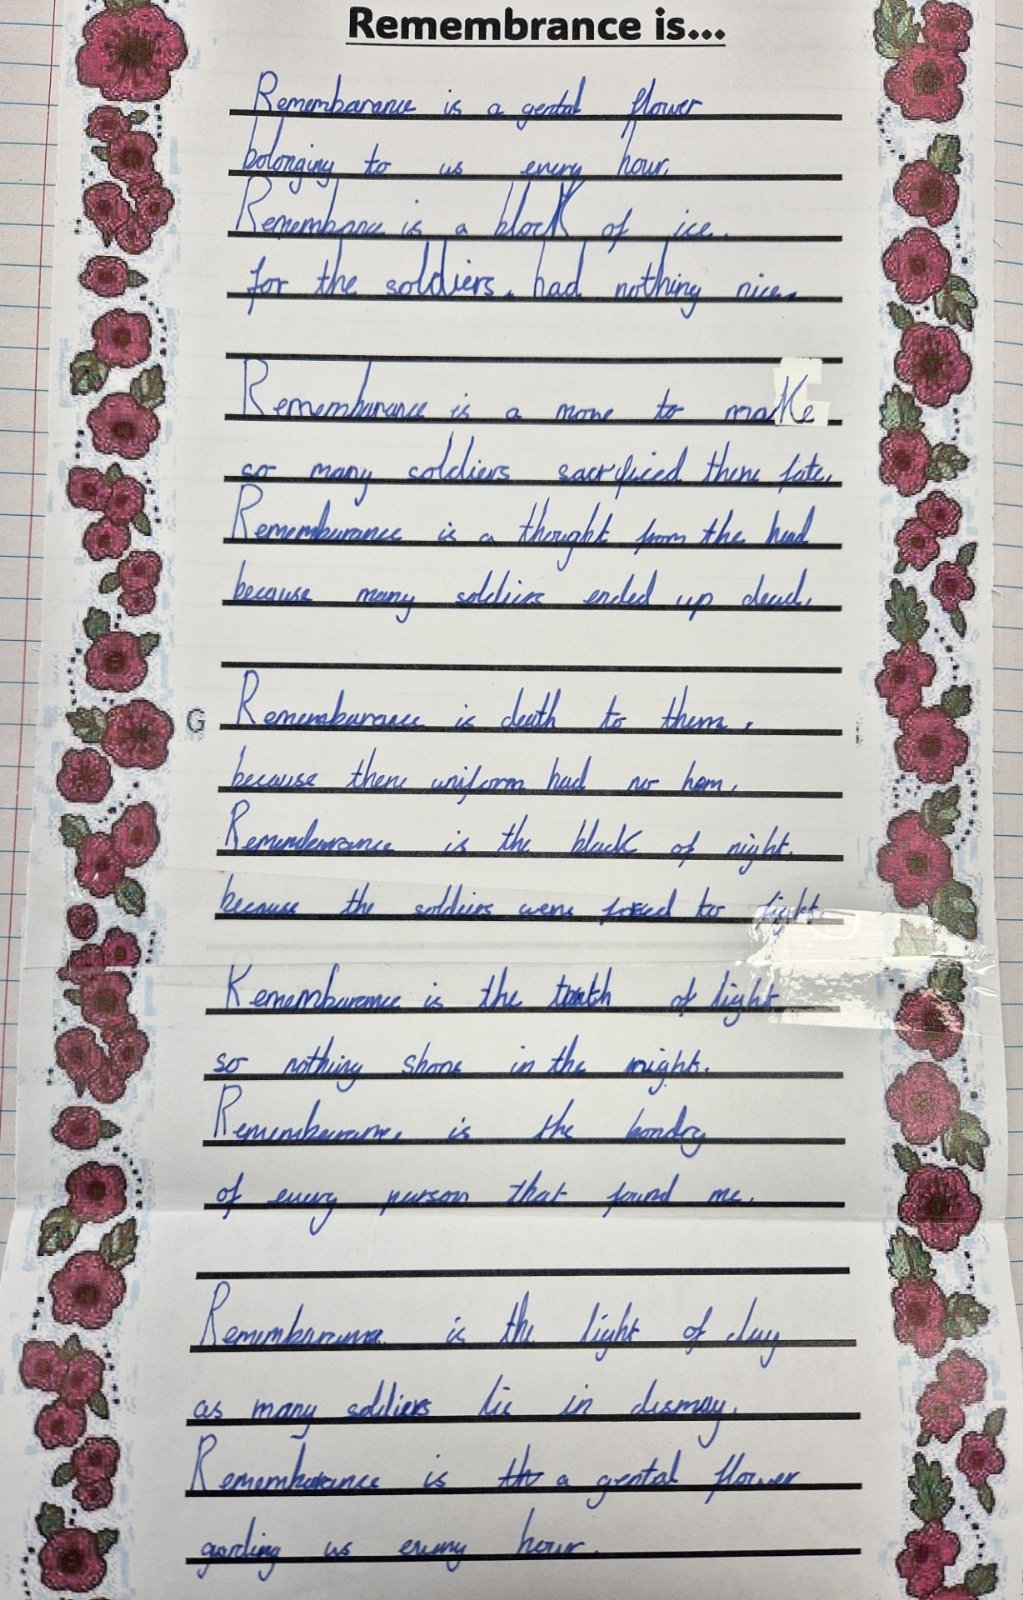 Remembrance is...
Remembarance is a gental flower
bolonging to us every hour.
Remembrance is a block of ice.
for the soldiers. had nothing nice.
Rememburance is a move to make
so many soldiers sacrificed there fate.
Rememburance is a thought from the head
because many soldiers ended up dead.
G Rememburance is death to them.
because there uniform had no hem.
Rememburance is the black of night.
because the soldiers were forced to fight.
Rememburance is the of light
so nothing shone in the night.
is the bondry
of every person that found me.
is the light of day
as many soldiers lie in dismay.
Rememburance is a gental flower
garding us every hour.